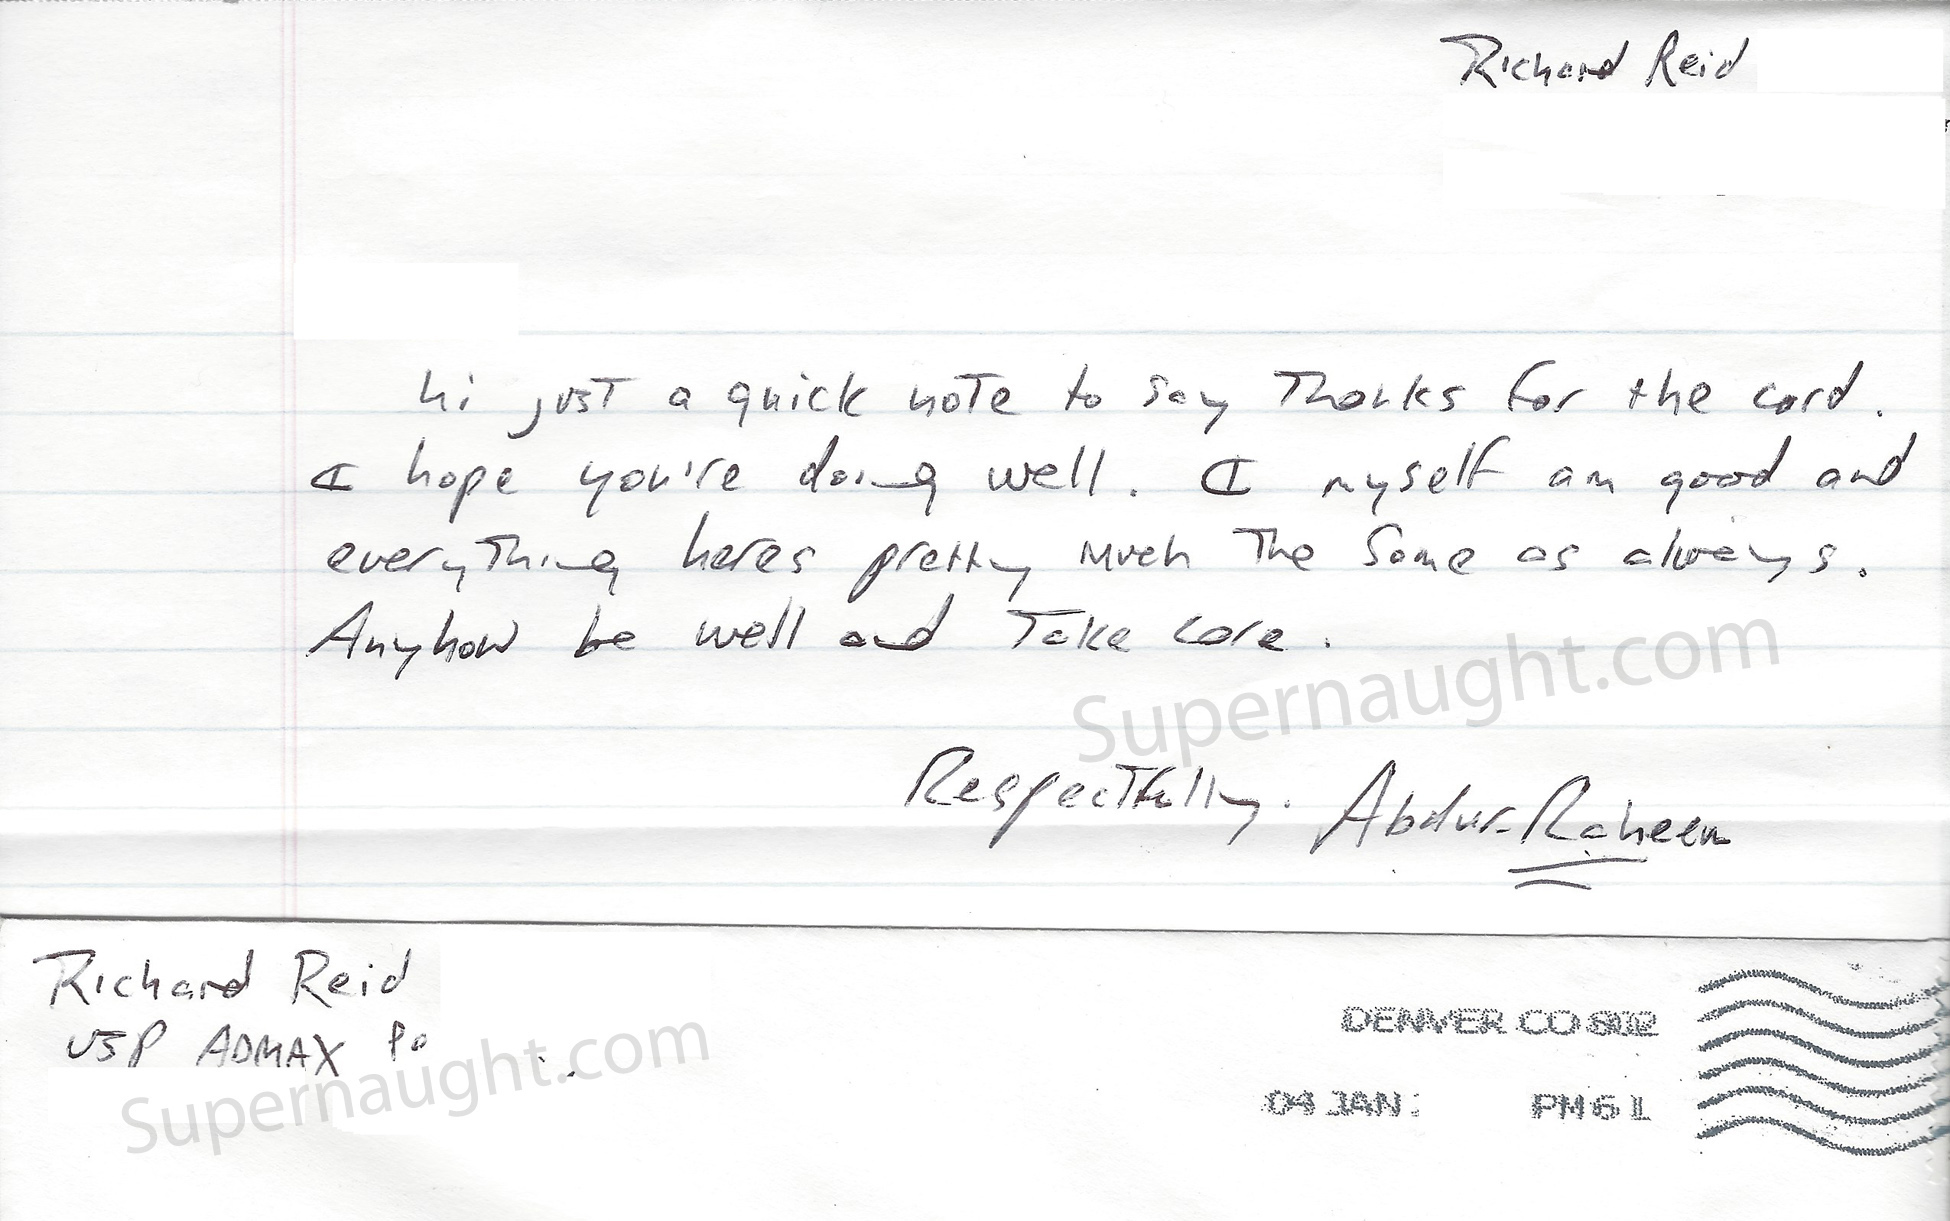 Richard Reid
hi just a quick note to say Thanks for the card.
I hope you're doing well. I myself am good and
everything heres pretty much The Same as always.
Anyhow be well and Take care.
Supernaught.com
Respectfully. Abdur-Raheem
Richard Reid
USP ADMAX Po
Supernaught.com
DENVER CO 802
04 JAN PM 6 L